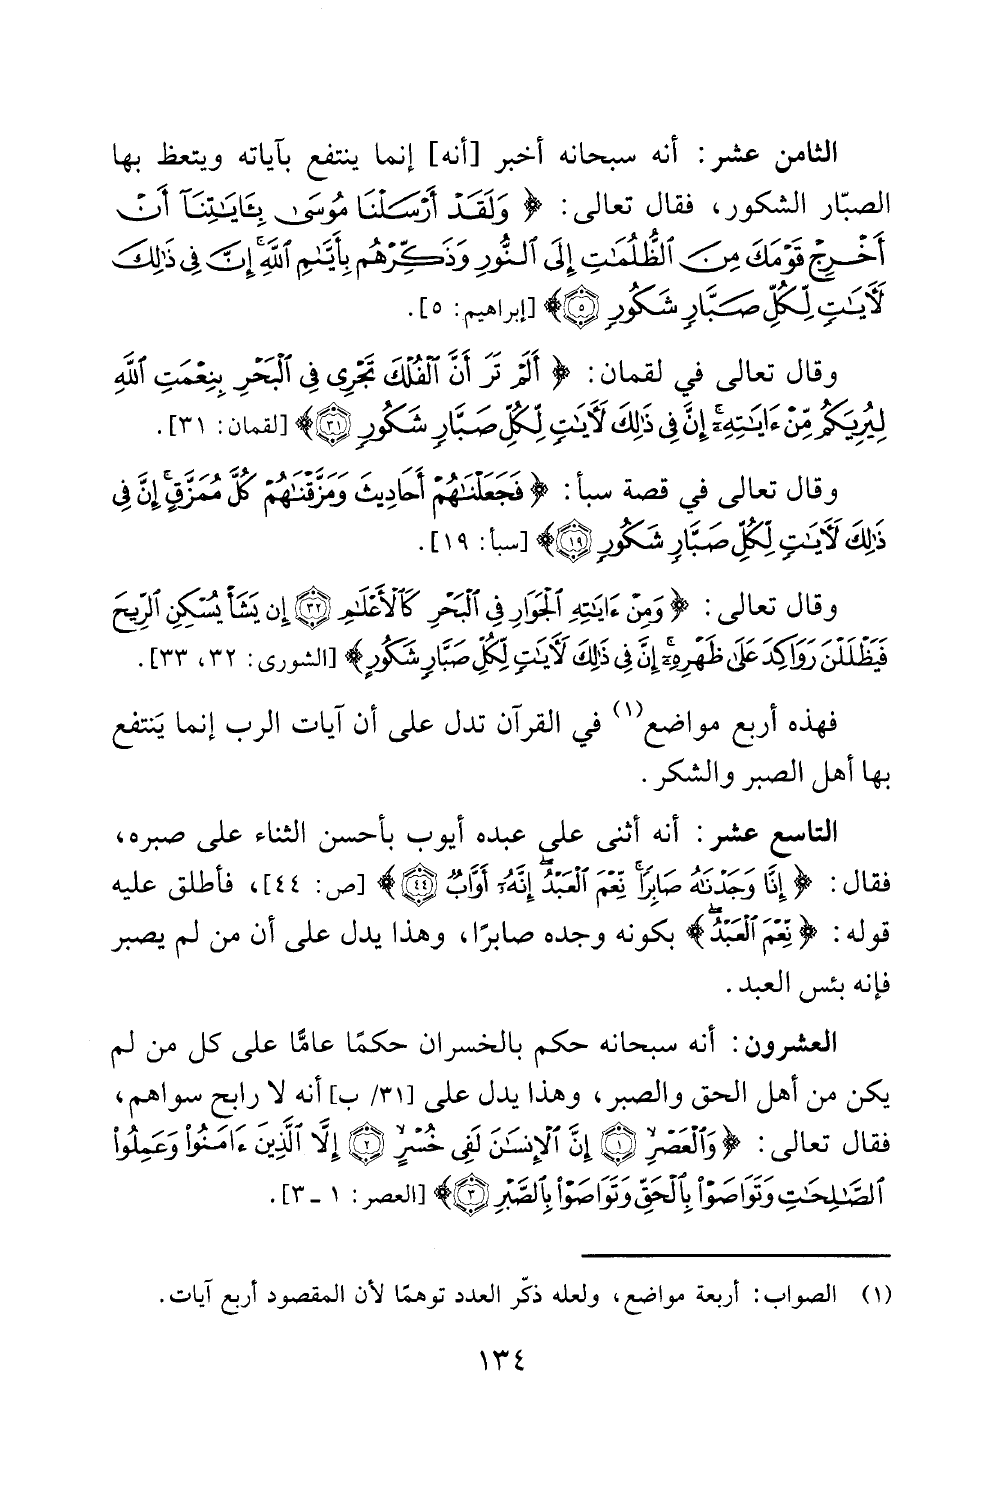 الثامن عشر: أنه سبحانه أخبر [أنه] إنما ينتفع بآياته ويتعظ بها
الصبّار الشكور، فقال تعالى: ﴿ وَلَقَدْ أَرْسَلْنَا مُوسَىٰ بِـَٔايَـٰتِنَآ أَنْ
أَخْرِجْ قَوْمَكَ مِنَ ٱلظُّلُمَـٰتِ إِلَى ٱلنُّورِ وَذَكِّرْهُم بِأَيَّىٰمِ ٱللَّهِ ۚ إِنَّ فِى ذَٰلِكَ
لَـَٔايَـٰتٍ لِّكُلِّ صَبَّارٍ شَكُورٍ ۝٥﴾ [إبراهيم: ٥].
وقال تعالى في لقمان: ﴿ أَلَمْ تَرَ أَنَّ ٱلْفُلْكَ تَجْرِى فِى ٱلْبَحْرِ بِنِعْمَتِ ٱللَّهِ
لِيُرِيَكُم مِّنْ ءَايَـٰتِهِۦٓ ۚ إِنَّ فِى ذَٰلِكَ لَـَٔايَـٰتٍ لِّكُلِّ صَبَّارٍ شَكُورٍ ۝٣١﴾ [لقمان: ٣١].
وقال تعالى في قصة سبأ: ﴿ فَجَعَلْنَـٰهُمْ أَحَادِيثَ وَمَزَّقْنَـٰهُمْ كُلَّ مُمَزَّقٍ ۚ إِنَّ فِى
ذَٰلِكَ لَـَٔايَـٰتٍ لِّكُلِّ صَبَّارٍ شَكُورٍ ۝١٩﴾ [سبأ: ١٩].
وقال تعالى: ﴿ وَمِنْ ءَايَـٰتِهِ ٱلْجَوَارِ فِى ٱلْبَحْرِ كَٱلْأَعْلَـٰمِ ۝٣٢ إِن يَشَأْ يُسْكِنِ ٱلرِّيحَ
فَيَظْلَلْنَ رَوَاكِدَ عَلَىٰ ظَهْرِهِۦٓ ۚ إِنَّ فِى ذَٰلِكَ لَـَٔايَـٰتٍ لِّكُلِّ صَبَّارٍ شَكُورٍ﴾ [الشورى: ٣٢، ٣٣].
فهذه أربع مواضع(١) في القرآن تدل على أن آيات الرب إنما يَنتفع
بها أهل الصبر والشكر.
التاسع عشر: أنه أثنى على عبده أيوب بأحسن الثناء على صبره،
فقال: ﴿ إِنَّا وَجَدْنَـٰهُ صَابِرًا ۚ نِّعْمَ ٱلْعَبْدُ ۖ إِنَّهُۥٓ أَوَّابٌ ۝٤٤﴾ [ص: ٤٤]، فأطلق عليه
قوله: ﴿ نِّعْمَ ٱلْعَبْدُ ۖ﴾ بكونه وجده صابرًا، وهذا يدل على أن من لم يصبر
فإنه بئس العبد.
العشرون: أنه سبحانه حكم بالخسران حكمًا عامًّا على كل من لم
يكن من أهل الحق والصبر، وهذا يدل على [٣١/ ب] أنه لا رابح سواهم،
فقال تعالى: ﴿ وَٱلْعَصْرِ ۝١ إِنَّ ٱلْإِنسَـٰنَ لَفِى خُسْرٍ ۝٢ إِلَّا ٱلَّذِينَ ءَامَنُوا۟ وَعَمِلُوا۟
ٱلصَّـٰلِحَـٰتِ وَتَوَاصَوْا۟ بِٱلْحَقِّ وَتَوَاصَوْا۟ بِٱلصَّبْرِ ۝٣﴾ [العصر: ١ - ٣].
(١) الصواب: أربعة مواضع، ولعله ذكّر العدد توهمًا لأن المقصود أربع آيات.
١٣٤